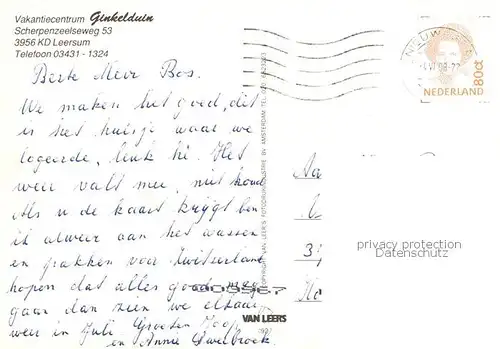 Vakantiecentrum Ginkelduin
Scherpenzeelseweg 53
3956 KD Leersum
Telefoon 03431 - 1324
80ct
NEDERLAND
Beste Mevr Bos.
We maken het goed, dit
is het huisje waar we
logeerde, leuk hè. Het
weer valt mee, niet koud
Als u de kaart krijgt ben
ik alweer aan het wassen
en pakken voor Zwitserland
hopen dat alles goed
gaan dan zien we elkaar
weer in Juli Groeten Joop
en Annie
VAN LEER'S FOTODRUKINDUSTRIE BV AMSTERDAM TEL.
VAN LEERS
privacy protection
Datenschutz